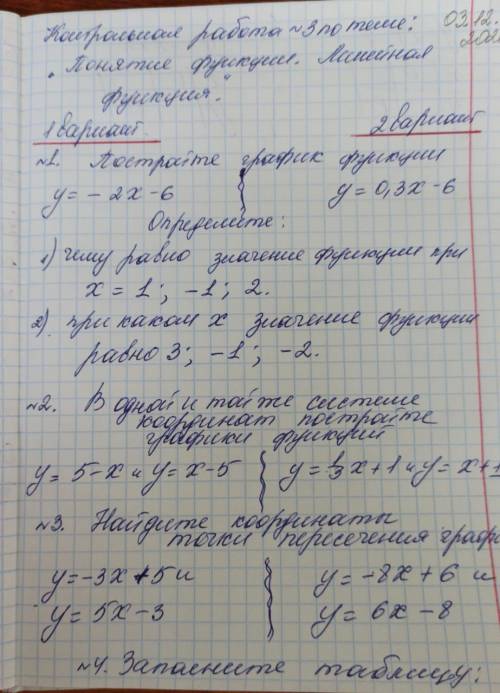 Контрольная работа ~3 по теме:
03.12.
"Понятие функции. Линейная
функция."
1 вариант 2 вариант
~1. Постройте график функции
y = - 2x - 6 y = 0,3x - 6
Определите:
1) чему равно значение функции при
x = 1; -1; 2.
2) при каком x значение функции
равно 3; -1; -2.
~2. В одной и той же системе
координат постройте
графики функций
y = 5-x и y = x-5 y = 1/3 x + 1 и y = x + 1
~3. Найдите координаты
точки пересечения граф
y = -3x + 5 и y = -8x + 6 и
y = 5x - 3 y = 6x - 8
~4. Заполните таблицу: